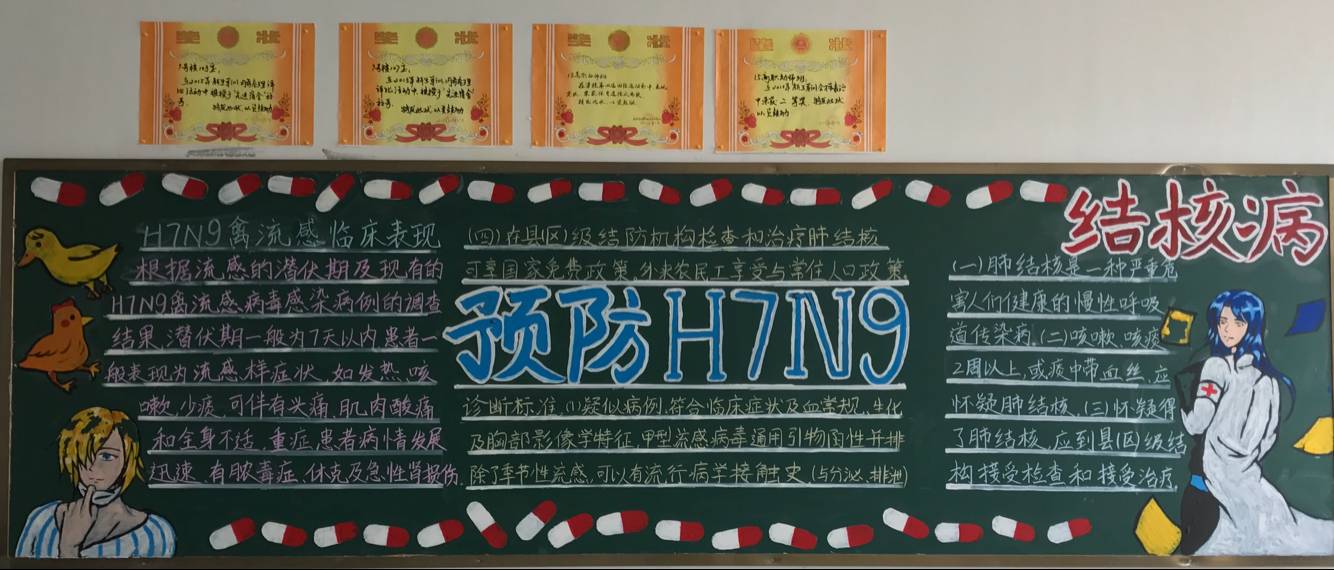 奖状
奖状
奖状
奖状
结核病
H7N9禽流感临床表现
根据流感的潜伏期及现有的
H7N9禽流感病毒感染病例的调查
结果,潜伏期一般为7天以内,患者一
般表现为流感样症状,如发热,咳
嗽,少痰,可伴有头痛,肌肉酸痛
和全身不适,重症患者病情发展
迅速,有脓毒症,休克及急性肾损伤.
(四)在县(区)级结防机构检查和治疗肺结核
可享国家免费政策,外来农民工享受与常住人口政策.
预防H7N9
诊断标准,(1)疑似病例,符合临床症状及血常规,生化
及胸部影像学特征,甲型流感病毒通用引物阳性并排
除了季节性流感,可以有流行病学接触史(与分泌、排泄)
(一)肺结核是一种严重危
害人们健康的慢性呼吸
道传染病.(二)咳嗽、咳痰
2周以上,或痰中带血丝,应
怀疑肺结核.(三)怀疑得
了肺结核,应到县(区)级结
构接受检查和接受治疗.